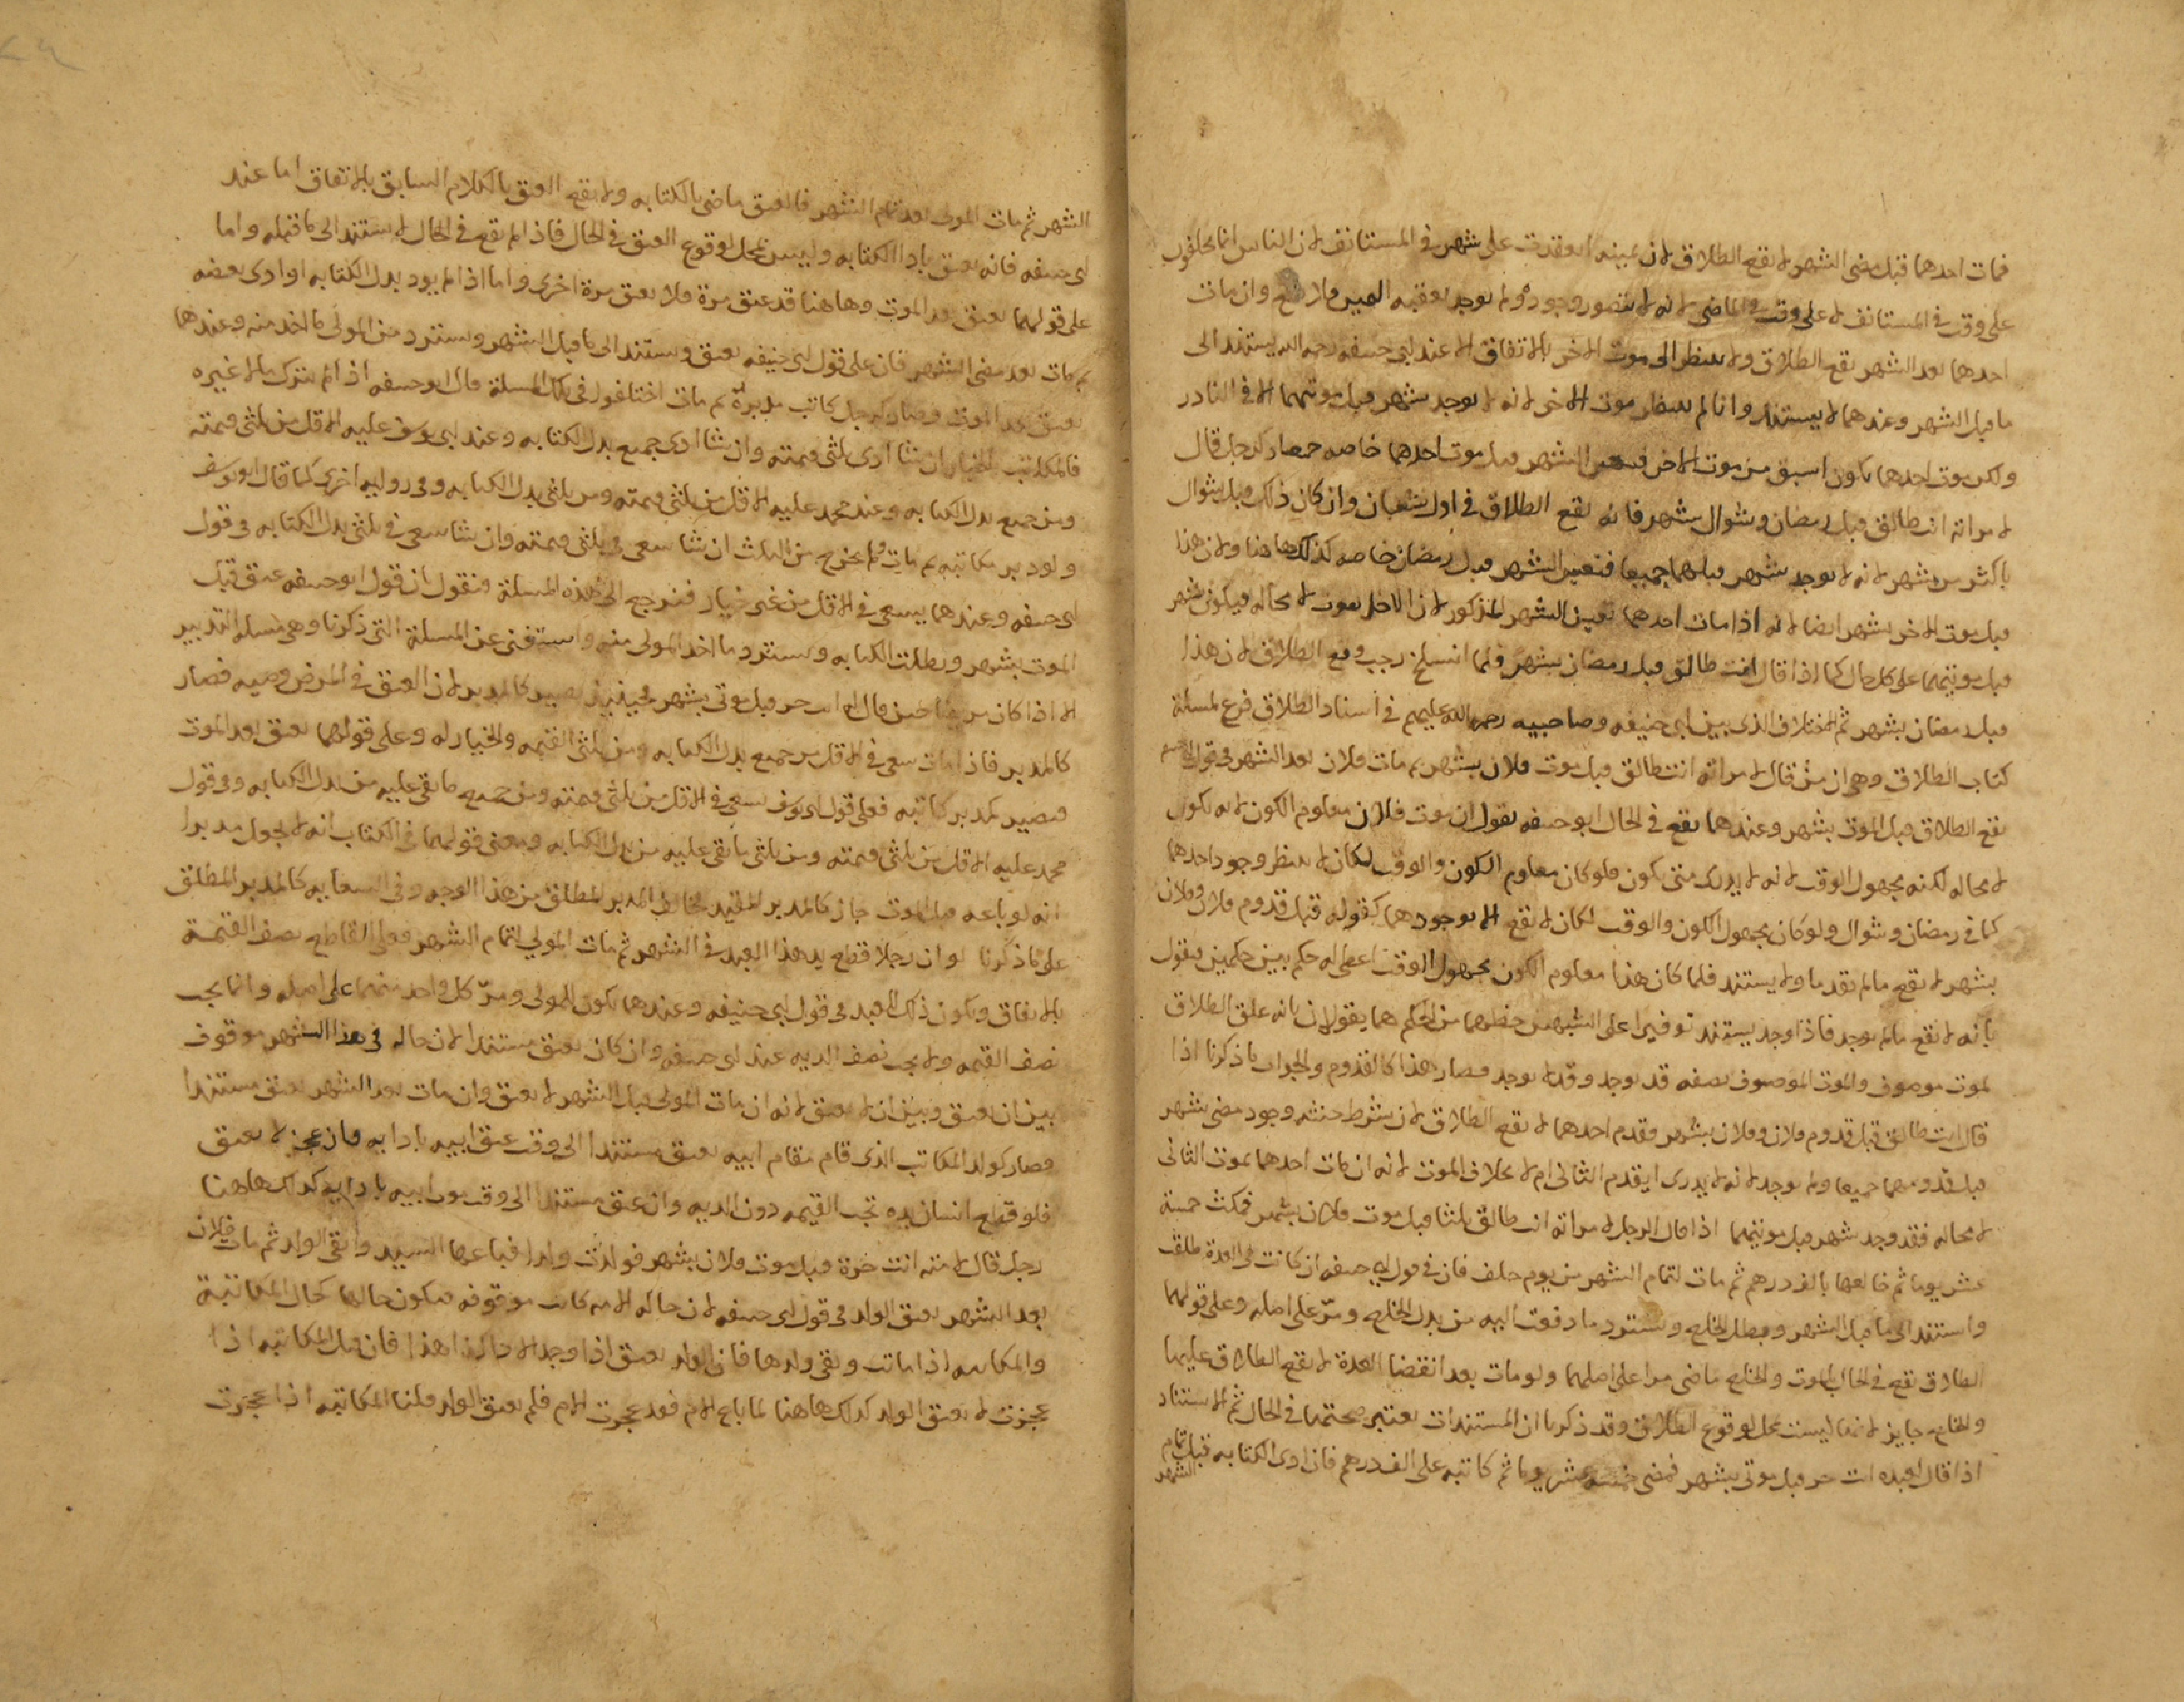 فمات احدهما قبل مضى الشهر لا يقع الطلاق لان يمينه انعقدت على شهر في المستانف لان الناس انما يحلفون
على وقت في المستانف لا على وقت في الماضي لانه لا يتصور وجوده ولم يوجد بعقبه اليمين فلا يقع وان مات
احدهما بعد الشهر يقع الطلاق ولا ينظر الى موت الاخر بالاتفاق الا عند ابى حنيفه رحمه الله يستند الى
ما قبل الشهر وعندهما لا يستند وانما لم ينتظر موت الاخر لانه لا يوجد شهر قبل موتهما الا في النادر
ولكن موت احدهما يكون اسبق من موت الاخر فيعتبر الشهر قبل موت احدهما خاصه فصار كرجل قال
لامراته انت طالق قبل رمضان وشوال بشهر فانه يقع الطلاق في اول شعبان وان كان ذلك قبل شوال
باكثر من شهر لانه لا يوجد شهر قبلهما جميعا فتعين الشهر قبل رمضان خاصه كذلك هاهنا ولان هذا
قبل موت الاخر بشهر ايضا لانه اذا مات احدهما تعين الشهر المذكور لان الاخر يموت لا محاله فيكون شهر
قبل موتيهما على كل حال كما اذا قال انت طالق قبل رمضان بشهر فلما انسلخ رجب وقع الطلاق لان هذا
قبل رمضان بشهر ثم الاختلاف الذى بين ابى حنيفه وصاحبيه رحمة الله عليهم في اسناد الطلاق فرع لمسلة
كتاب الطلاق وهى ان من قال لامراته انت طالق قبل موت فلان بشهر ثم مات فلان بعد الشهر في قول ابى حنيفه
يقع الطلاق قبل الموت بشهر وعندهما يقع في الحال ابو حنيفه يقول ان موت فلان معلوم الكون لانه يكون
لا محاله لكنه مجهول الوقت لانه لا يدرى متى يكون فلو كان معلوم الكون والوقت لكان لا ينظر وجود احدهما
كما في رمضان وشوال ولو كان مجهول الكون والوقت لكان لا يقع الا بوجودهما كقوله قبل قدوم فلان وفلان
بشهر لا يقع مالم يقدما ولا يستند فلما كان هذا معلوم الكون مجهول الوقت اعطى له حكم بين حكمين فيقول
بانه لا يقع مالم يوجد فاذا وجد يستند توفيرا على الشبهين حظهما من الحكم هما يقولان بانه علق الطلاق
لموت موصوف والموت الموصوف بصفه قد يوجد وقد لا يوجد فصار هذا كالقدوم والجواب ما ذكرنا اذا
قال انت طالق قبل قدوم فلان وفلان بشهر فقدم احدهما لا يقع الطلاق لان شرط حنثه وجود مضى شهر
قبل قدومهما جميعا ولم يوجد لانه لا يدرى ايقدم الثانى ام لا بخلاف الموت لانه ان مات احدهما يموت الثانى
لا محاله فقد وجد شهر قبل موتيهما اذا قال الرجل لامراته انت طالق ثلثا قبل موت فلان بشهر فمكث خمسة
عشر يوما ثم خالعها بالف درهم ثم مات لتمام الشهر من يوم حلف فان في قول ابى حنيفه ان كانت في العدة طلقت
واستند الى ما قبل الشهر ويبطل الخلع ويسترد ما دفعت اليه من بدل الخلع ومر على اصله وعلى قولهما
الطلاق يقع في الحال بالموت والخلع ماضى مرا على اصلهما ولو مات بعد انقضا العدة لا يقع الطلاق عليها
والخلع جايز لانها ليست بمحل لوقوع الطلاق وقد ذكرنا ان المستندات يعتبر صحتها في الحال ثم الاستناد
اذا قال لعبده انت حر قبل موتى بشهر فمضى خمسة عشر يوما ثم كاتبه على الف درهم فان ادى الكتابه قبل تمام
الشهر
الشهر ثم مات المولى بعد تمام الشهر فالعتق ماضى بالكتابه ولا يقع العتق بالكلام السابق بالاتفاق اما عند
ابى حنيفه فانه يعتق بادا الكتابه وليس بمحل لوقوع العتق في الحال فاذا لم يقع في الحال لا يستند الى ما قبله واما
على قولهما يعتق بعد الموت وهاهنا قد عتق مرة فلا يعتق مرة اخرى واما اذا لم يود بدل الكتابه او ادى بعضه
ثم مات بعد مضى الشهر فان على قول ابى حنيفه يعتق ويستند الى ما قبل الشهر ويسترد من المولى ما اخذ منه وعندهما
يعتق بعد الموت وصار كرجل كاتب مدبره ثم مات اختلفوا في تلك المسلة قال ابو حنيفه اذا لم يترك مالا غيره
فالمكاتب بالخيار ان شا ادى ثلثى قيمته وان شا ادى جميع بدل الكتابه وعند ابى يوسف عليه الاقل من ثلثى قيمته
ومن جميع بدل الكتابه وعند محمد عليه الاقل من ثلثى قيمته ومن ثلثى بدل الكتابه وفي روايه اخرى كما قال ابو يوسف
ولو دبر مكاتبه ثم مات ولم يخرج من الثلث ان شا سعى في ثلثى قيمته وان شا سعى في ثلثى بدل الكتابه في قول
ابى حنيفه وعندهما يسعى في الاقل من غير خيار فنرجع الى هذه المسلة فنقول ان قول ابو حنيفه عتق قبل
الموت بشهر وبطلت الكتابه ويسترد ما اخذ المولى منه واستغنى عن المسلة التى ذكرنا وهى مسلة التدبير
الا اذا كان مريضا حين قال له انت حر قبل موتى بشهر فحينئذ يصير كالمدبر لان العتق في المرض وصيه فصار
كالمدبر فاذا مات سعى في الاقل من جميع بدل الكتابه ومن ثلثى القيمه والخيار له وعلى قولهما يعتق بعد الموت
فيصير كمدبر كاتبه فعلى قول ابى يوسف يسعى في الاقل من ثلثى قيمته ومن جميع ما بقى عليه من بدل الكتابه وفي قول
محمد عليه الاقل من ثلثى قيمته ومن ثلثى ما بقى عليه من بدل الكتابه ومعنى قولهما في الكتاب انه لا يجعل مدبرا
انه لو باعه قبل الموت جاز كالمدبر المقيد يخالف المدبر المطلق من هذا الوجه وفي السعايه كالمدبر المطلق
على ما ذكرنا لو ان رجلا قطع يد هذا العبد في الشهر ثم مات المولى لتمام الشهر فعلى القاطع نصف القيمة
بالاتفاق ويكون ذلك للعبد في قول ابى حنيفه وعندهما يكون للمولى ومر كل واحد منهما على اصله وانما يجب
نصف القيمه ولا يجب نصف الديه عند ابى حنيفه وان كان يعتق مستندا لان حاله في هذا الشهر موقوف
بين ان يعتق وبين ان لا يعتق لانه ان مات المولى قبل الشهر لا يعتق وان مات بعد الشهر يعتق مستندا
وصار كولد المكاتب الذى قام مقام ابيه يعتق مستندا الى وقت عتق ابيه بادايه وان عجز لا يعتق
فلو قطع انسان يده تجب القيمه دون الديه وان عتق مستندا الى وقت موت ابيه بادايه كذلك هاهنا
رجل قال لامته انت حرة قبل موت فلان بشهر فولدت ولدا فباعها السيد وابقى الولد ثم مات فلان
بعد الشهر يعتق الولد في قول ابى حنيفه لان حاله الامه كانت موقوفه فيكون حالها كحال المكاتبة
والمكاتبه اذا ماتت وبقى ولدها فان الولد يعتق اذا وجد الادا كذا هذا فان قيل المكاتبه اذا
عجزت لا يعتق الولد كذلك هاهنا لما باع الام فقد عجزت الام فلم يعتق الولد قلنا المكاتبه اذا عجزت